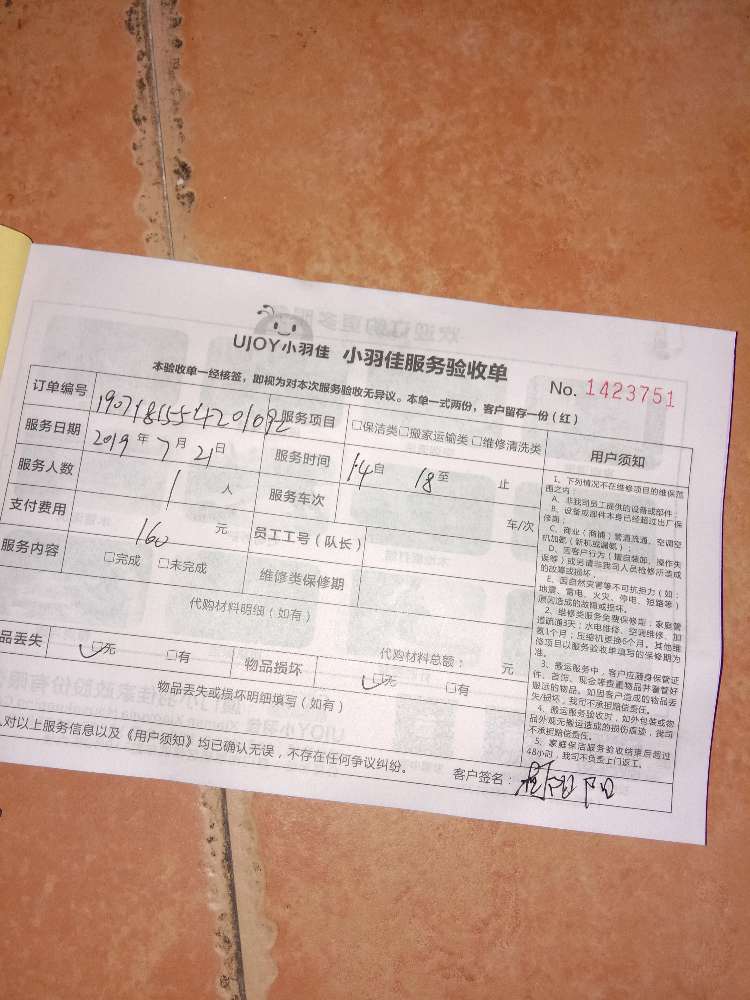 UJOY小羽佳 小羽佳服务验收单
No. 1423751
本验收单一经核签，即视为对本次服务验收无异议。本单一式两份，客户留存一份（红）
订单编号 服务项目 □保洁类□搬家运输类□维修清洗类 用户须知
服务日期 2019年7月21日 服务时间 14自 18至 止
服务人数 1人 服务车次 车/次
支付费用 160元 员工工号（队长）
服务内容 □完成 □未完成 维修类保修期
代购材料明细（如有） 代购材料总额： 元
品丢失 □无 □有 物品损坏 □无 □有
物品丢失或损坏明细填写（如有）
人对以上服务信息以及《用户须知》均已确认无误，不存在任何争议纠纷。 客户签名：
1、下列情况不在维修项目的维保范
围之内：
A、非我司员工提供的设备或部件；
B、设备或部件本身已经超过出厂保
修期；
C、商业（商铺）管道疏通、空调空
机加氟（新机或漏氟）；
D、因客户行为（擅自装卸、操作失
误等）或另请非我司人员检修所造成
的故障或损坏。
E、因自然灾害等不可抗拒力（如：
地震、雷电、火灾、停电、短路等）
原因造成的故障或损坏。
2、维修类服务免费保修期：家庭管
道疏通3天；水电维修、空调维修、加
氟1个月；压缩机更换6个月。其他维
修项目以服务验收单填写的保修期为
准。
3、搬运服务中，客户应随身保管证
件、首饰、现金等贵重物品并看管好
搬运的物品。如因客户造成的物品丢
失/损坏，我司不承担赔偿责任。
4、搬运服务验收时，如外包装或物
品外观无搬运造成的损伤痕迹，我司
不承担赔偿责任。
5、家庭保洁服务验收结束后超过
48小时，我司不负责上门返工。